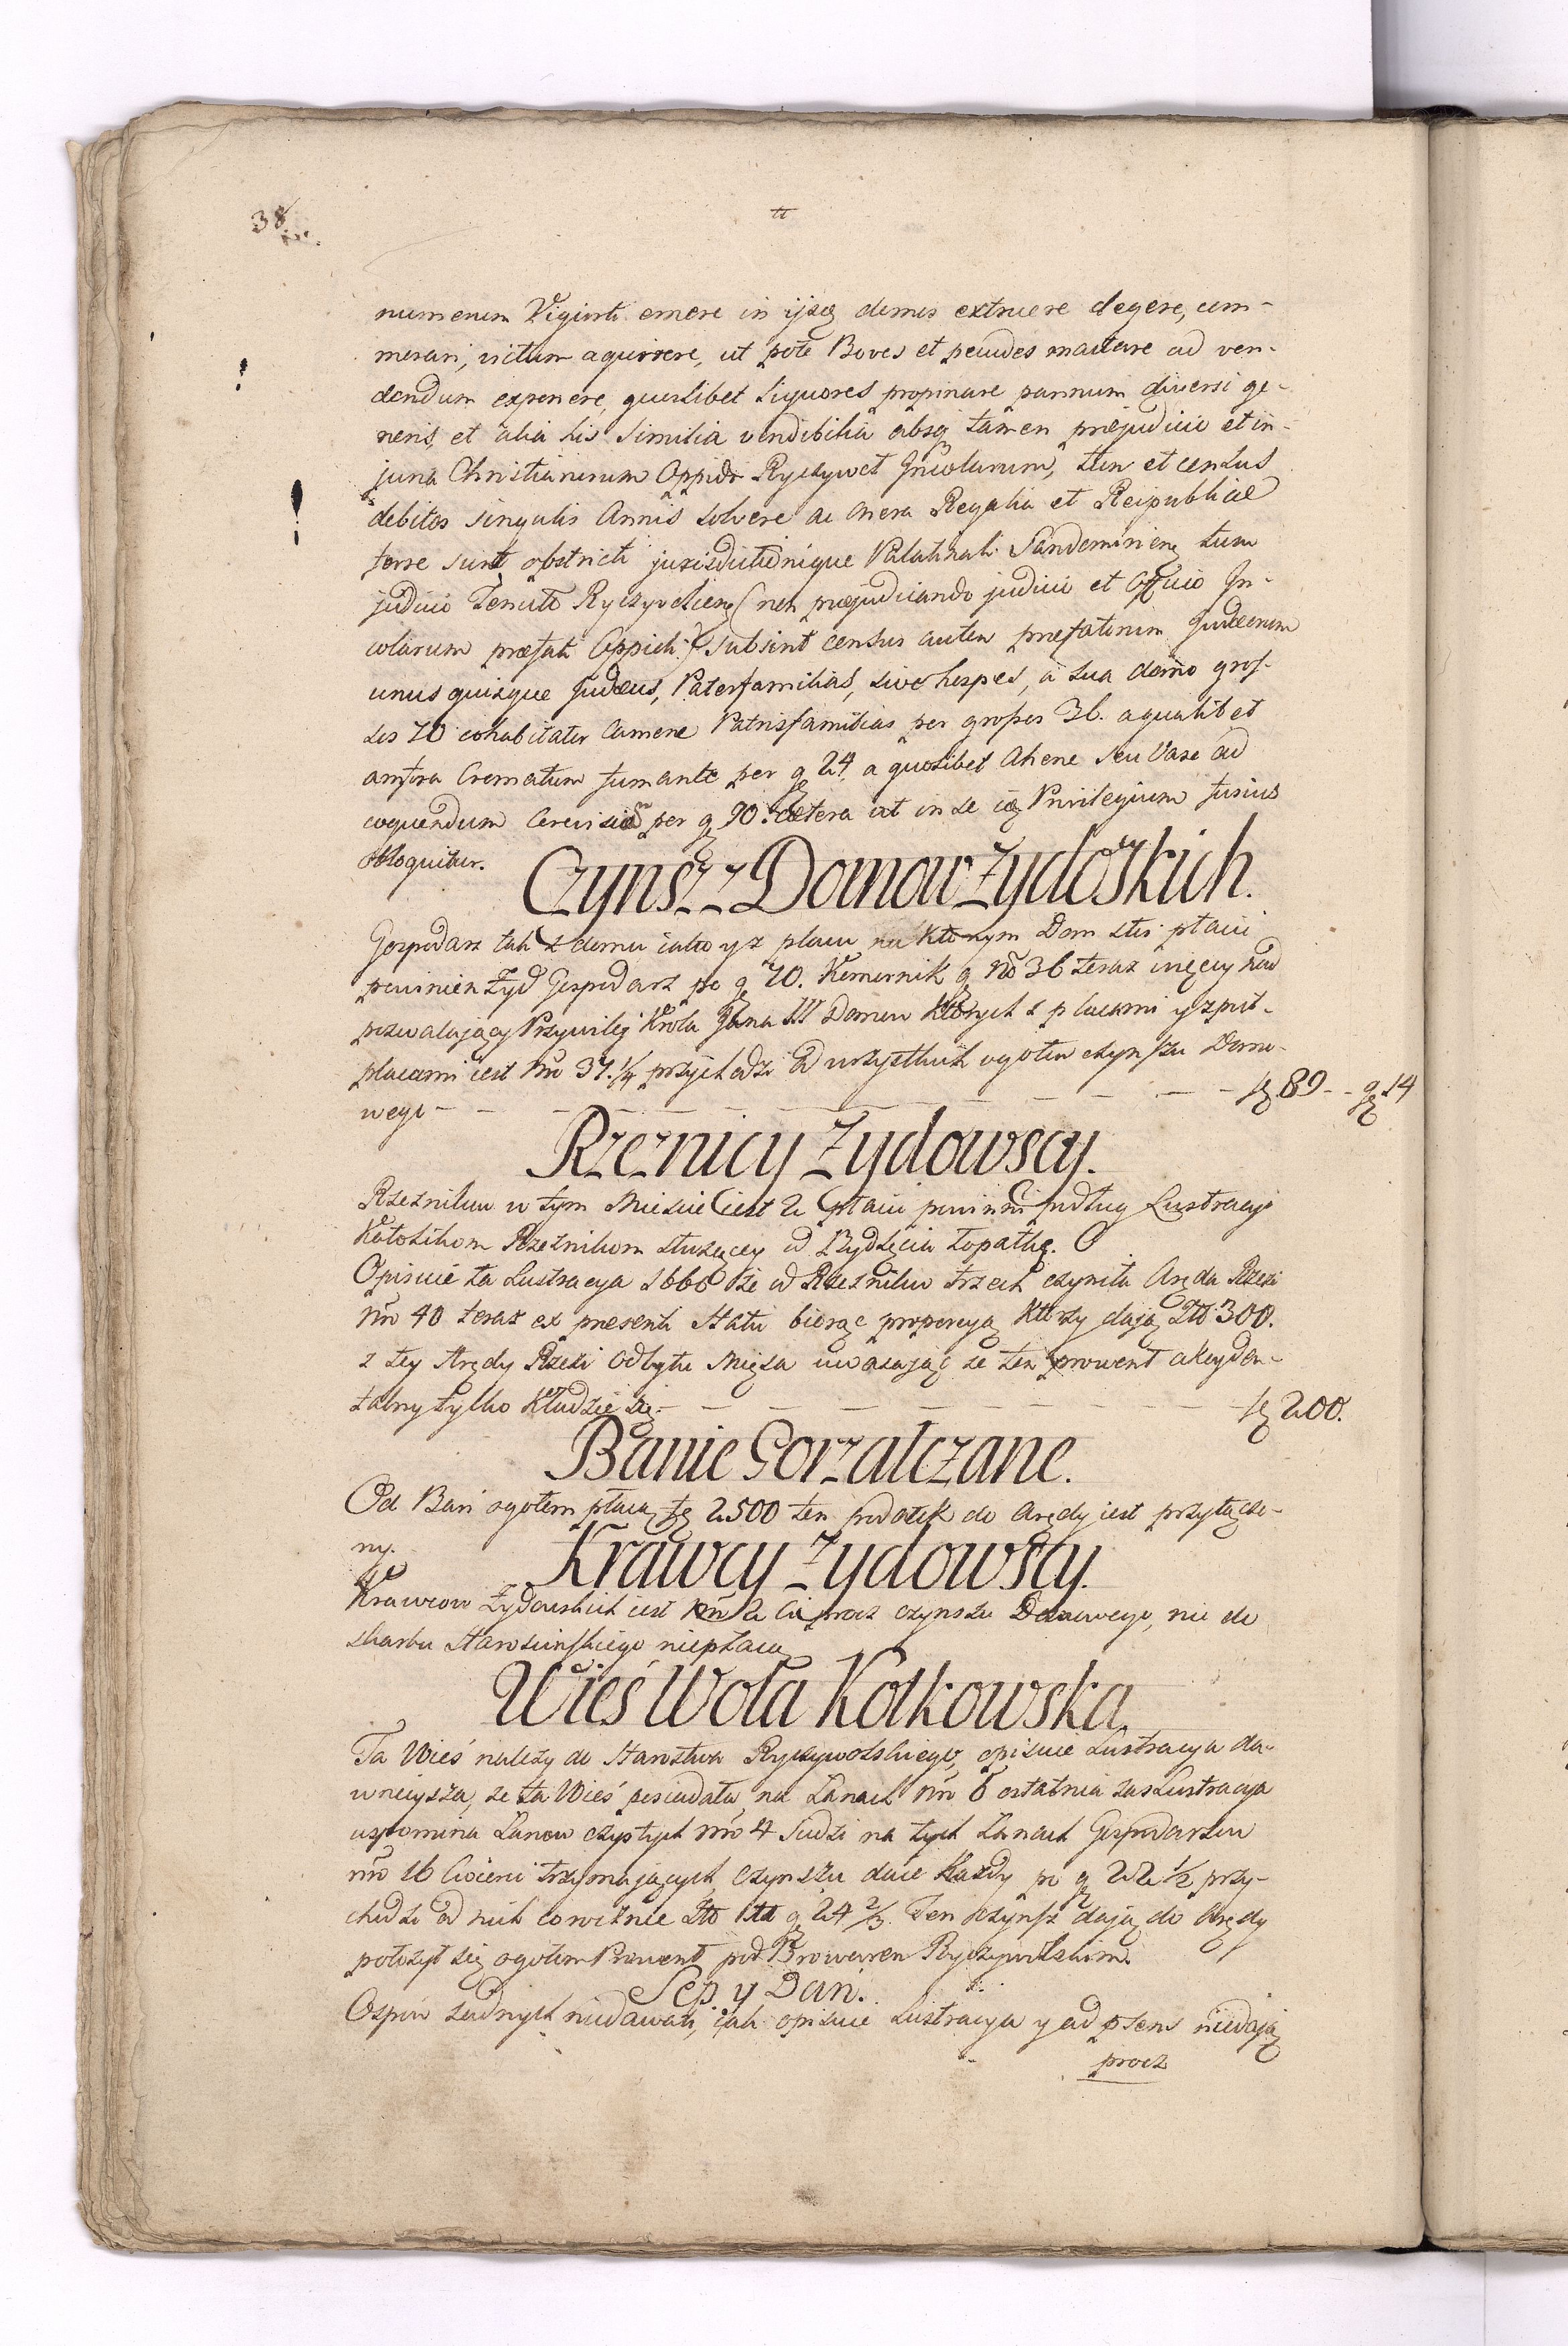 38
numerum Viginti emere in ijsq domus extruere degere, com-
morari, victum aquirere, ut pote Boves et pecudes mactare ad ven-
dendum exponere, quoslibet Liquores propinare pannum diversi ge-
neris, et alia his similia vendibilia absq tamen præjudicio et in-
juria Christianorum Oppidi Ryczywot Incolarum, Item et census
debitos singulis Annis solvere ac onera Regalia et Reipublicæ
ferre sunt obstricti jurisdictionique Palatinali Sandomirieng tum
judicio Tenuto Ryczyvolieng (non præjudicando judicio et Officio In-
colarum præfati Oppidi:) subsint census autem præfatorum Judæorum
unus quisque Judæus, Paterfamilias, sive hospes, a sua domo gros-
sos 70 cohabitator Camere Patrisfamilias per grosses 36. a qualibet
amfora Crematum fumante per g 24, a quolibet Ahene seu Vase ad
coquendum Cerevisiam per g 90. cætera ut in se idq Privilegium fusius
obloquitur.
Czynsz z Domow Żydoskich.
Gospodarz tak z domu iako y z placu na ktorym Dom stoi płaci
powinien Żyd Gospodarz po g 70. Komornik g No 36 teraz więcy nad
pozwalaiący Przywiley Krola Jana III Domow ktorych z placami y z puł-
placami iest Nro 37.1/4 przychodzi od wszystkich ogołem czynszu Domo-
wego - - - - - - - - fz 89 - - g 14
Rzeznicy Zydowscy.
Rzeznikow w tym Miescie iest 2 płacić powinni podług Lustracyi
Katolikom Rzeznikom służącey od Bydlęcia łopatkę.
Opisuie ta Lustracya 1660 że od Rzeznikow trzech czyniła Aręda Rzezi
Nro 40 teraz ex presenti statu biorąc proporcyą ktorzy daią Zło 300.
z tey Arędy Rzezi Odbytu Mięsa uwazaiąc ze ten prowent akcyden-
talny tylko kładzie się - - - - - - - fz 200.
Banie Gorzałczane.
Od Bań ogołem płacą fz 2500 ten podatek do Arędy iest przyłączo-
ny.
Krawcy Zydowscy.
Krawcow Zydowskich iest Nro 2 Ci procz czynszu Domowego, nic do
skarbu Starościnskiego niepłacą
Wieś Wola Kołkowska
Ta Wieś należy do Starostwa Ryczywolskiego, opisuie Lustracya da-
wnieysza, ze ta Wieś posiadała na Łanach Nro 6 ostatnia zas Lustracya
wspomina Łanow czystych Nro 4 Ludzi na tych Łanach Gospodarzow
Nro 16 Cwierci trzymaiących, czynszu daie każdy po g 22 1/2 przy-
chodzi od nich corocznie Zło g 24 2/3. Ten czynsz daią do Arędy
położył się ogołem Prowent pod Browarem Ryczywolskim.
Sep. y Dań.
Ospow żadnych niedawali, iak opisuie Lustracya y ad præsens niedaią
procz